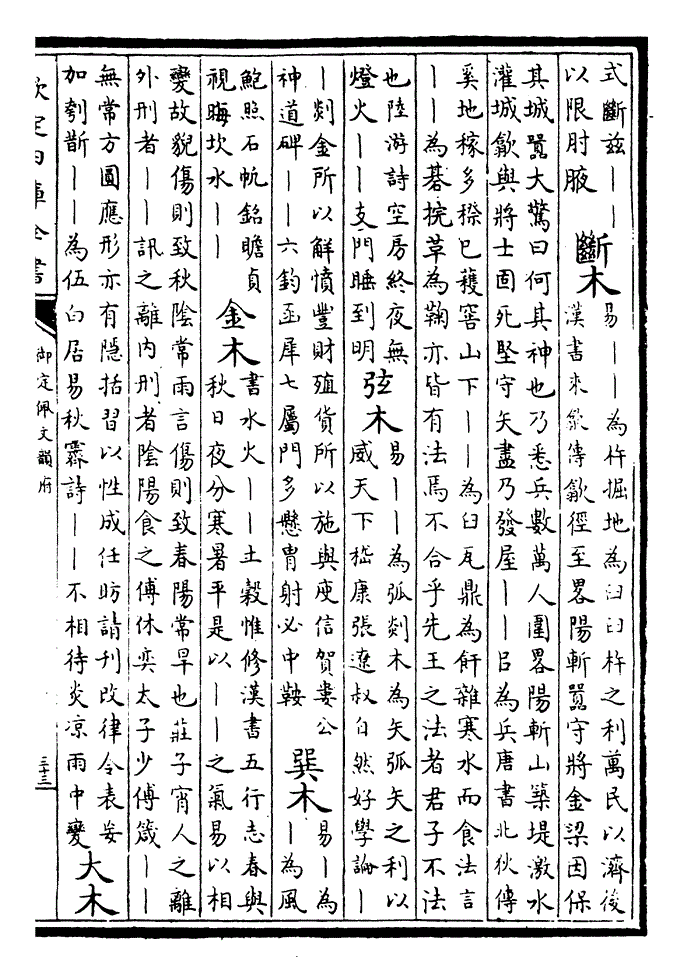 式斷兹｜｜
以限肘腋
斷木
易｜｜為杵掘地為臼臼杵之利萬民以濟後
漢書來歙傳歙徑至畧陽斬囂守將金梁因保
其城囂大驚曰何其神也乃悉兵數萬人圍畧陽斬山築堤激水
灌城歙與將士固死堅守矢盡乃發屋｜｜㠯為兵唐書北狄傳
奚地稼多穄已穫窖山下｜｜為臼瓦鼎為飦雜寒水而食法言
｜｜為棊捖革為鞠亦皆有法焉不合乎先王之法者君子不法
也陸游詩空房終夜無
燈火｜｜支門睡到明
弦木
易｜｜為弧剡木為矢弧矢之利以
威天下嵇康張遼叔自然好學論｜
｜剡金所以解憤豐財殖貨所以施與庾信賀婁公
神道碑｜｜六鈞函犀七屬門多懸胄射必中鞍
巽木
易｜為
｜為風
鮑照石帆銘瞻貞
視晦坎水｜｜
金木
書水火｜｜土穀惟修漢書五行志春與
秋日夜分寒暑平是以｜｜之氣易以相
變故貌傷則致秋陰常雨言傷則致春陽常旱也莊子宵人之離
外刑者｜｜訊之離内刑者陰陽食之傅休奕太子少傅箴｜｜
無常方圓應形亦有隱括習以性成任昉請刊改律令表妄
加刳斮｜｜為伍白居易秋霖詩｜｜不相待炎凉雨中變
大木
欽定四庫全書
御定佩文韻府
三十三